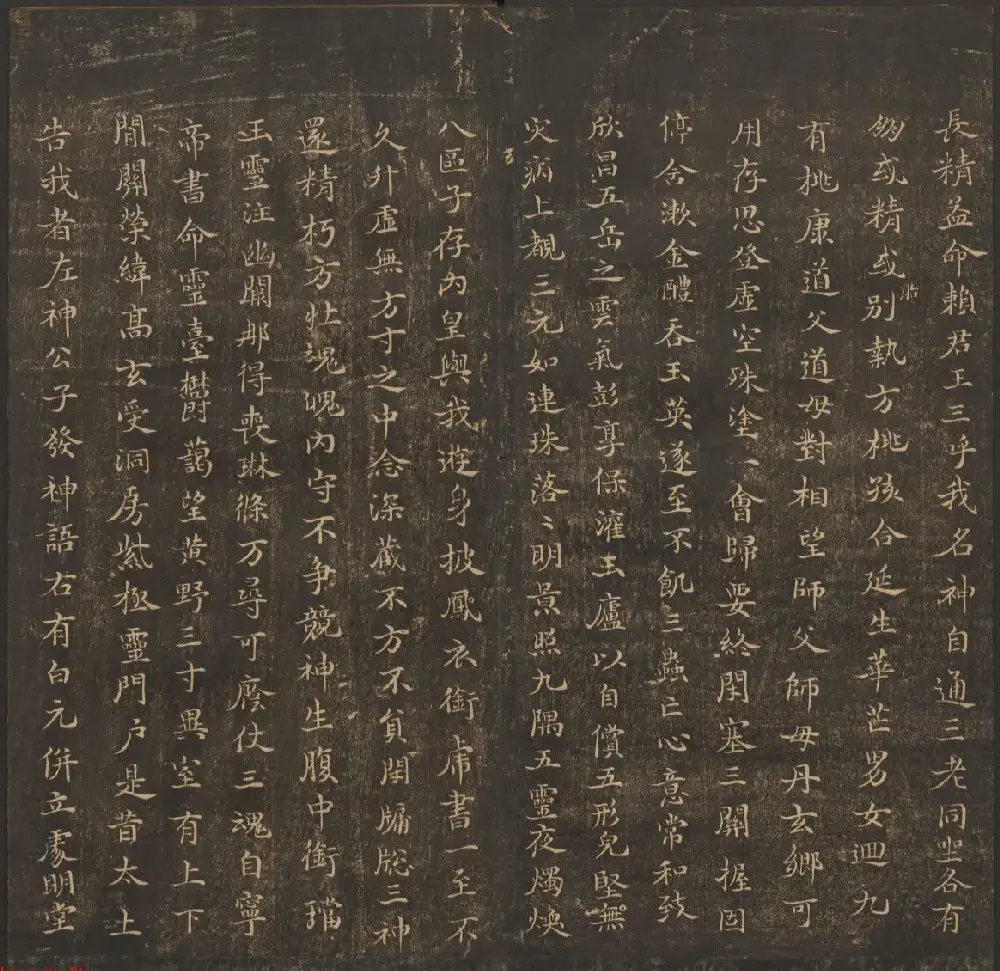 長精益命賴君王三呼我名神自通三老同坐各有
朋或精或别執方桃孩合延生華芒男女迴九
胎
有桃康道父道母對相望師父師母丹玄鄉可
用存思登虛空殊塗一會歸要終閉塞三關握固
停含漱金醴吞玉英遂至不飢三蟲亡心意常和致
欣昌五岳之雲氣彭亨保灌玉廬以自償五形完堅無
灾病上覩三元如連珠落〻明景照九隅五靈夜燭煥
八區子存內皇與我遊身披鳳衣銜虎書一至不
久升虛無方寸之中念深藏不方不負閉牖牕三神
還精朽方壯魂魄內守不爭競神生腹中銜璫
玉靈注幽闕那得喪琳條万尋可廕仗三魂自寧
帝書命靈臺欝藹望黃野三寸異室有上下
間關榮緯高玄受洞房紫極靈門户是昔太上
告我者左神公子發神語右有白元併立處明堂